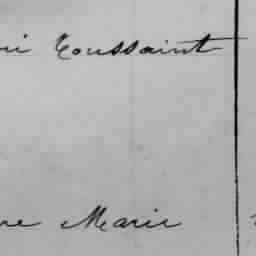 ri Toussaint
re Marie